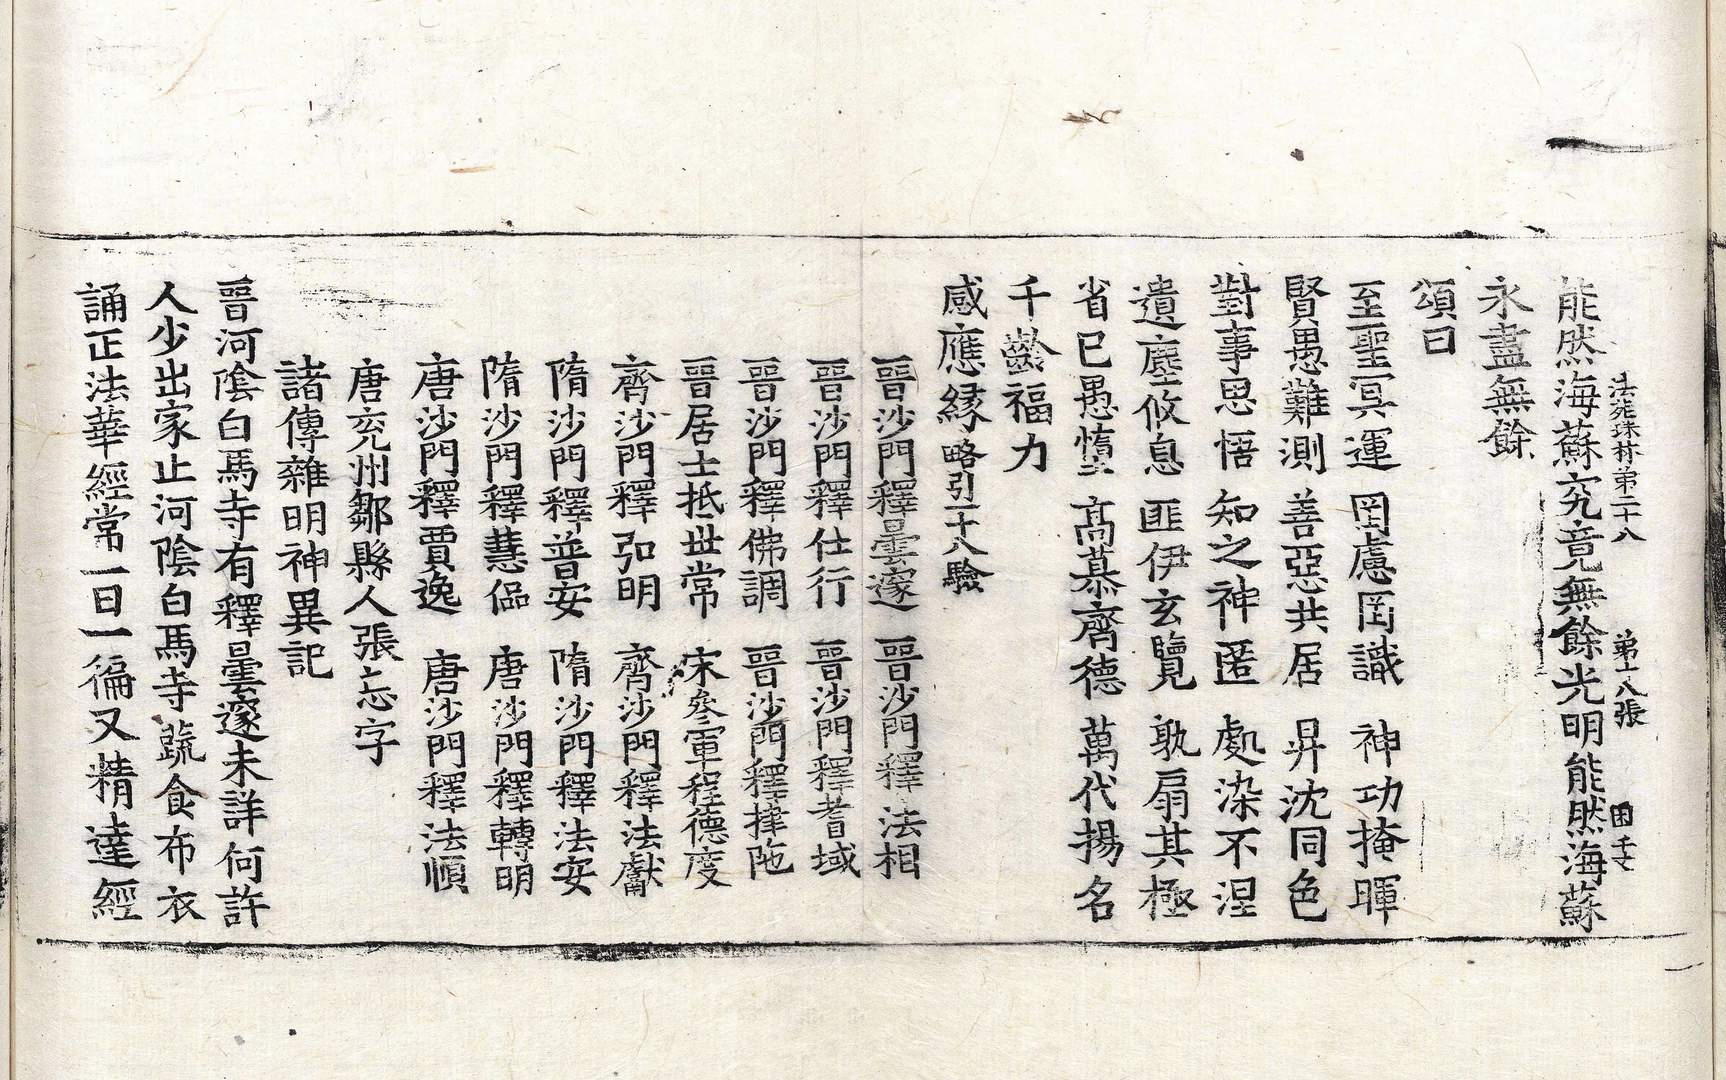 法苑珠林第二十八　第十八張　困
能然海蘇究竟無餘光明能然海蘇
永盡無餘
頌曰
至聖冥運　罔慮罔識　神功掩暉
賢愚難測　善惡共居　昇沈同色
對事思悟　知之神匿　處染不涅
遺塵攸息　匪伊玄覽　孰扇其極
省已愚惰　髙慕齊德　萬代揚名
千齡福力
感應緣略引一十八驗
晉沙門釋曇邃　晉沙門釋法相
晉沙門釋仕行　晉沙門釋耆域
晉沙門釋佛調　晉沙門釋揵陁
晉居士抵世常　宋叅軍程德度
齊沙門釋弘明　齊沙門釋法獻
隋沙門釋普安　隋沙門釋法安
隋沙門釋慧偘　唐沙門釋轉明
唐沙門釋賈逸　唐沙門釋法順
唐兖州鄒縣人張忘字
諸傳雜明神異記
晉河陰白馬寺有釋曇邃未詳何許
人少出家止河陰白馬寺蔬食布衣
誦正法華經常一日一徧又精達經